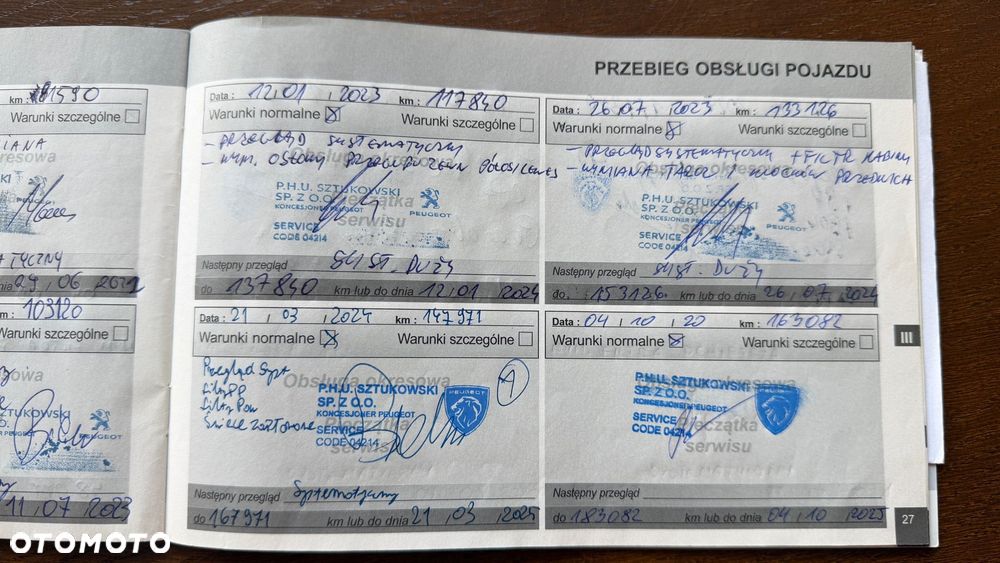 km : 81590
Warunki szczególne
IANA
resowa
PEUGEOT
ATYCZNY
nia 29 , 06 , 2022
m : 103120
Warunki szczególne
owa
PEUGEOT
11 , 07 , 2023
PRZEBIEG OBSŁUGI POJAZDU
Data : 12 , 01 , 2023 km : 117840
Warunki normalne
Warunki szczególne
- PRZEGLĄD SYSTEMATYCZNY
- WYM. OSŁONY PRZEGUBU ZEWN PÓŁOSI LEWEJ
Obsługa okresowa
P.H.U. SZTUKOWSKI
SP. Z O.O.
KONCESJONER PEUGEOT
SERVICE
CODE 04214
PEUGEOT
Pieczątka
serwisu
Następny przegląd SYST. DUŻY
do 137840 km lub do dnia 12 , 01 , 2024
Data : 26 , 07 , 2023 km : 133126
Warunki normalne
Warunki szczególne
- PRZEGLĄD SYSTEMATYCZNY + FILTR KABINY
- WYMIANA TARCZ I KLOCKÓW PRZEDNICH
P.H.U. SZTUKOWSKI
SP. Z O.O.
KONCESJONER PEUGEOT
SERVICE
CODE 04214
PEUGEOT
serwisu
Następny przegląd SYST. DUŻY
do 153126 km lub do dnia 26 , 07 , 2024
Data : 21 , 03 , 2024 km : 147971
Warunki normalne
Warunki szczególne
Przegląd Syst
Filtr Pow
Świece zapłonowe
Obsługa okresowa
P.H.U. SZTUKOWSKI
SP. Z O.O.
KONCESJONER PEUGEOT
SERVICE
CODE 04214
PEUGEOT
Pieczątka
serwisu
Następny przegląd Systematyczny
do 167971 km lub do dnia 21 , 03 , 2025
Data : 04 , 10 , 20 km : 163082
Warunki normalne
Warunki szczególne
P.H.U. SZTUKOWSKI
SP. Z O.O.
KONCESJONER PEUGEOT
SERVICE
CODE 04214
PEUGEOT
Pieczątka
serwisu
Następny przegląd
do 183082 km lub do dnia 04 , 10 , 2025
III
27
OTOMOTO